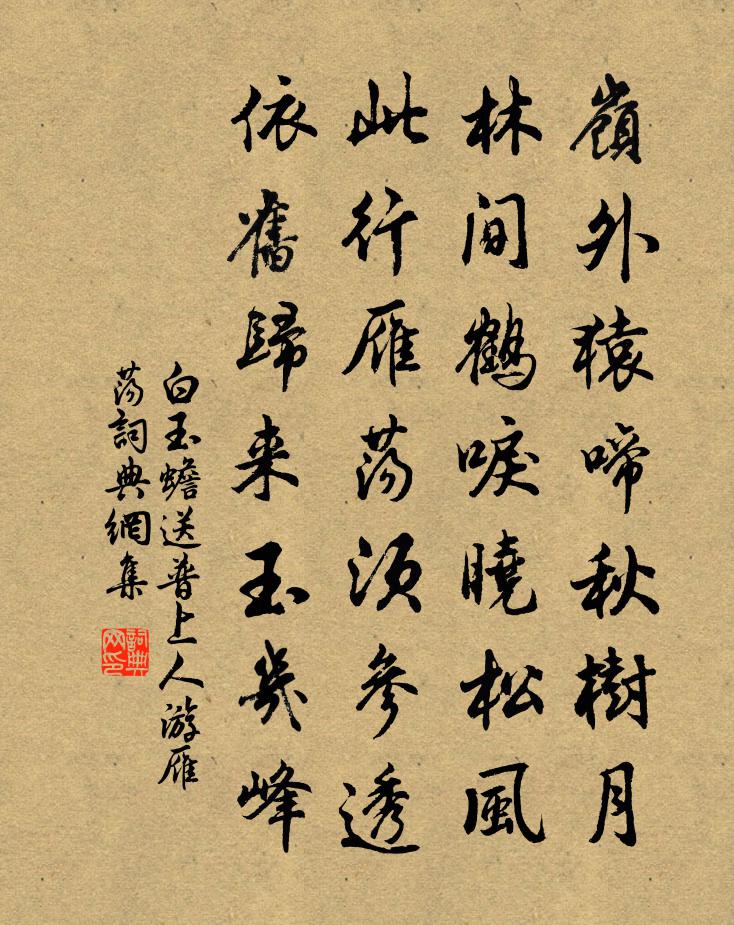 嶺外猿啼秋樹月
林間鶴唳曉松風
此行雁蕩須參透
依舊歸来玉幾峰
白玉蟾送普上人游雁
蕩詞典網集
詞典网印